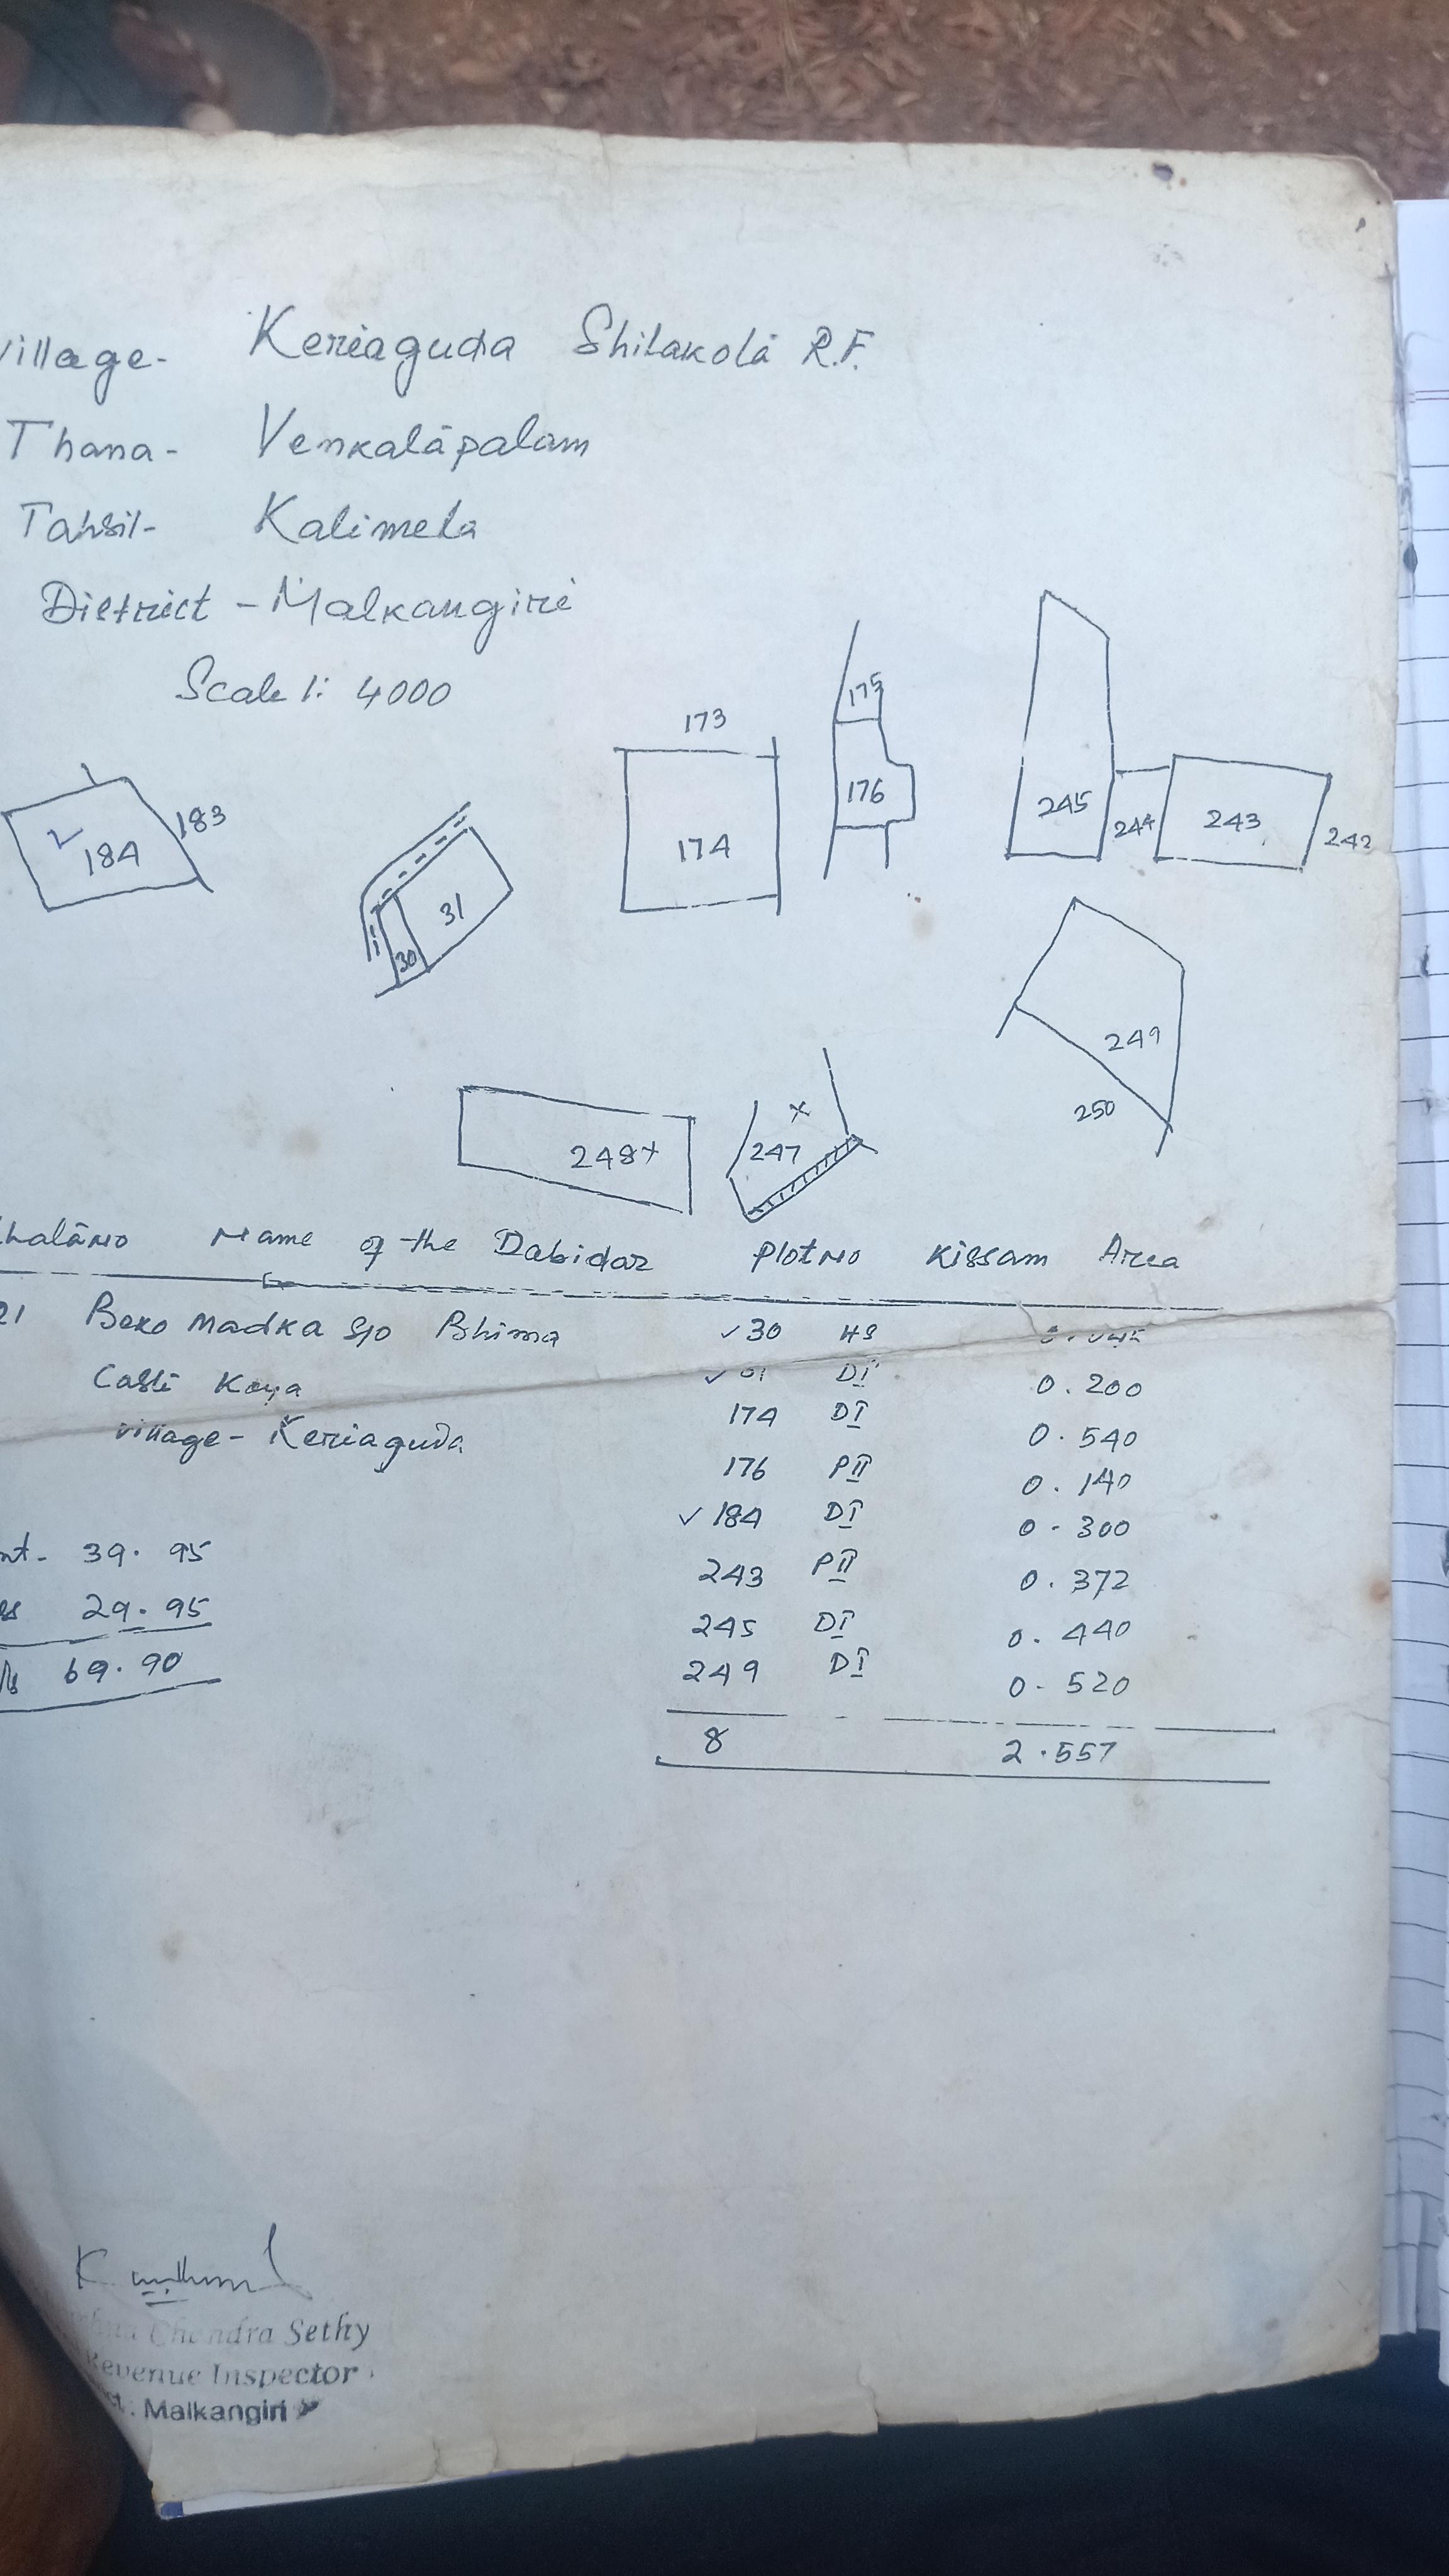 Village- Keriaguda Shilakota R.F.
Thana- Venkatapalam
Tahsil- Kalimela
District - Malkangiri
Scale 1: 4000
173
175
183
184
31
30
174
176
245
244
243
242
249
250
248 x
x
247
Khata No Name of the Dabidar Plot No Kissam Area
21 Beko Madka S/o Bhima ✓30 HS
Caste Koya ✓ DI 0.200
174 DI 0.540
village- Keriaguda
176 PII 0.140
✓184 DI 0.300
39.95
243 PII 0.372
29.95
245 DI 0.440
69.90
249 DI 0.520
8 2.557
Chandra Sethy
Revenue Inspector
Malkangiri